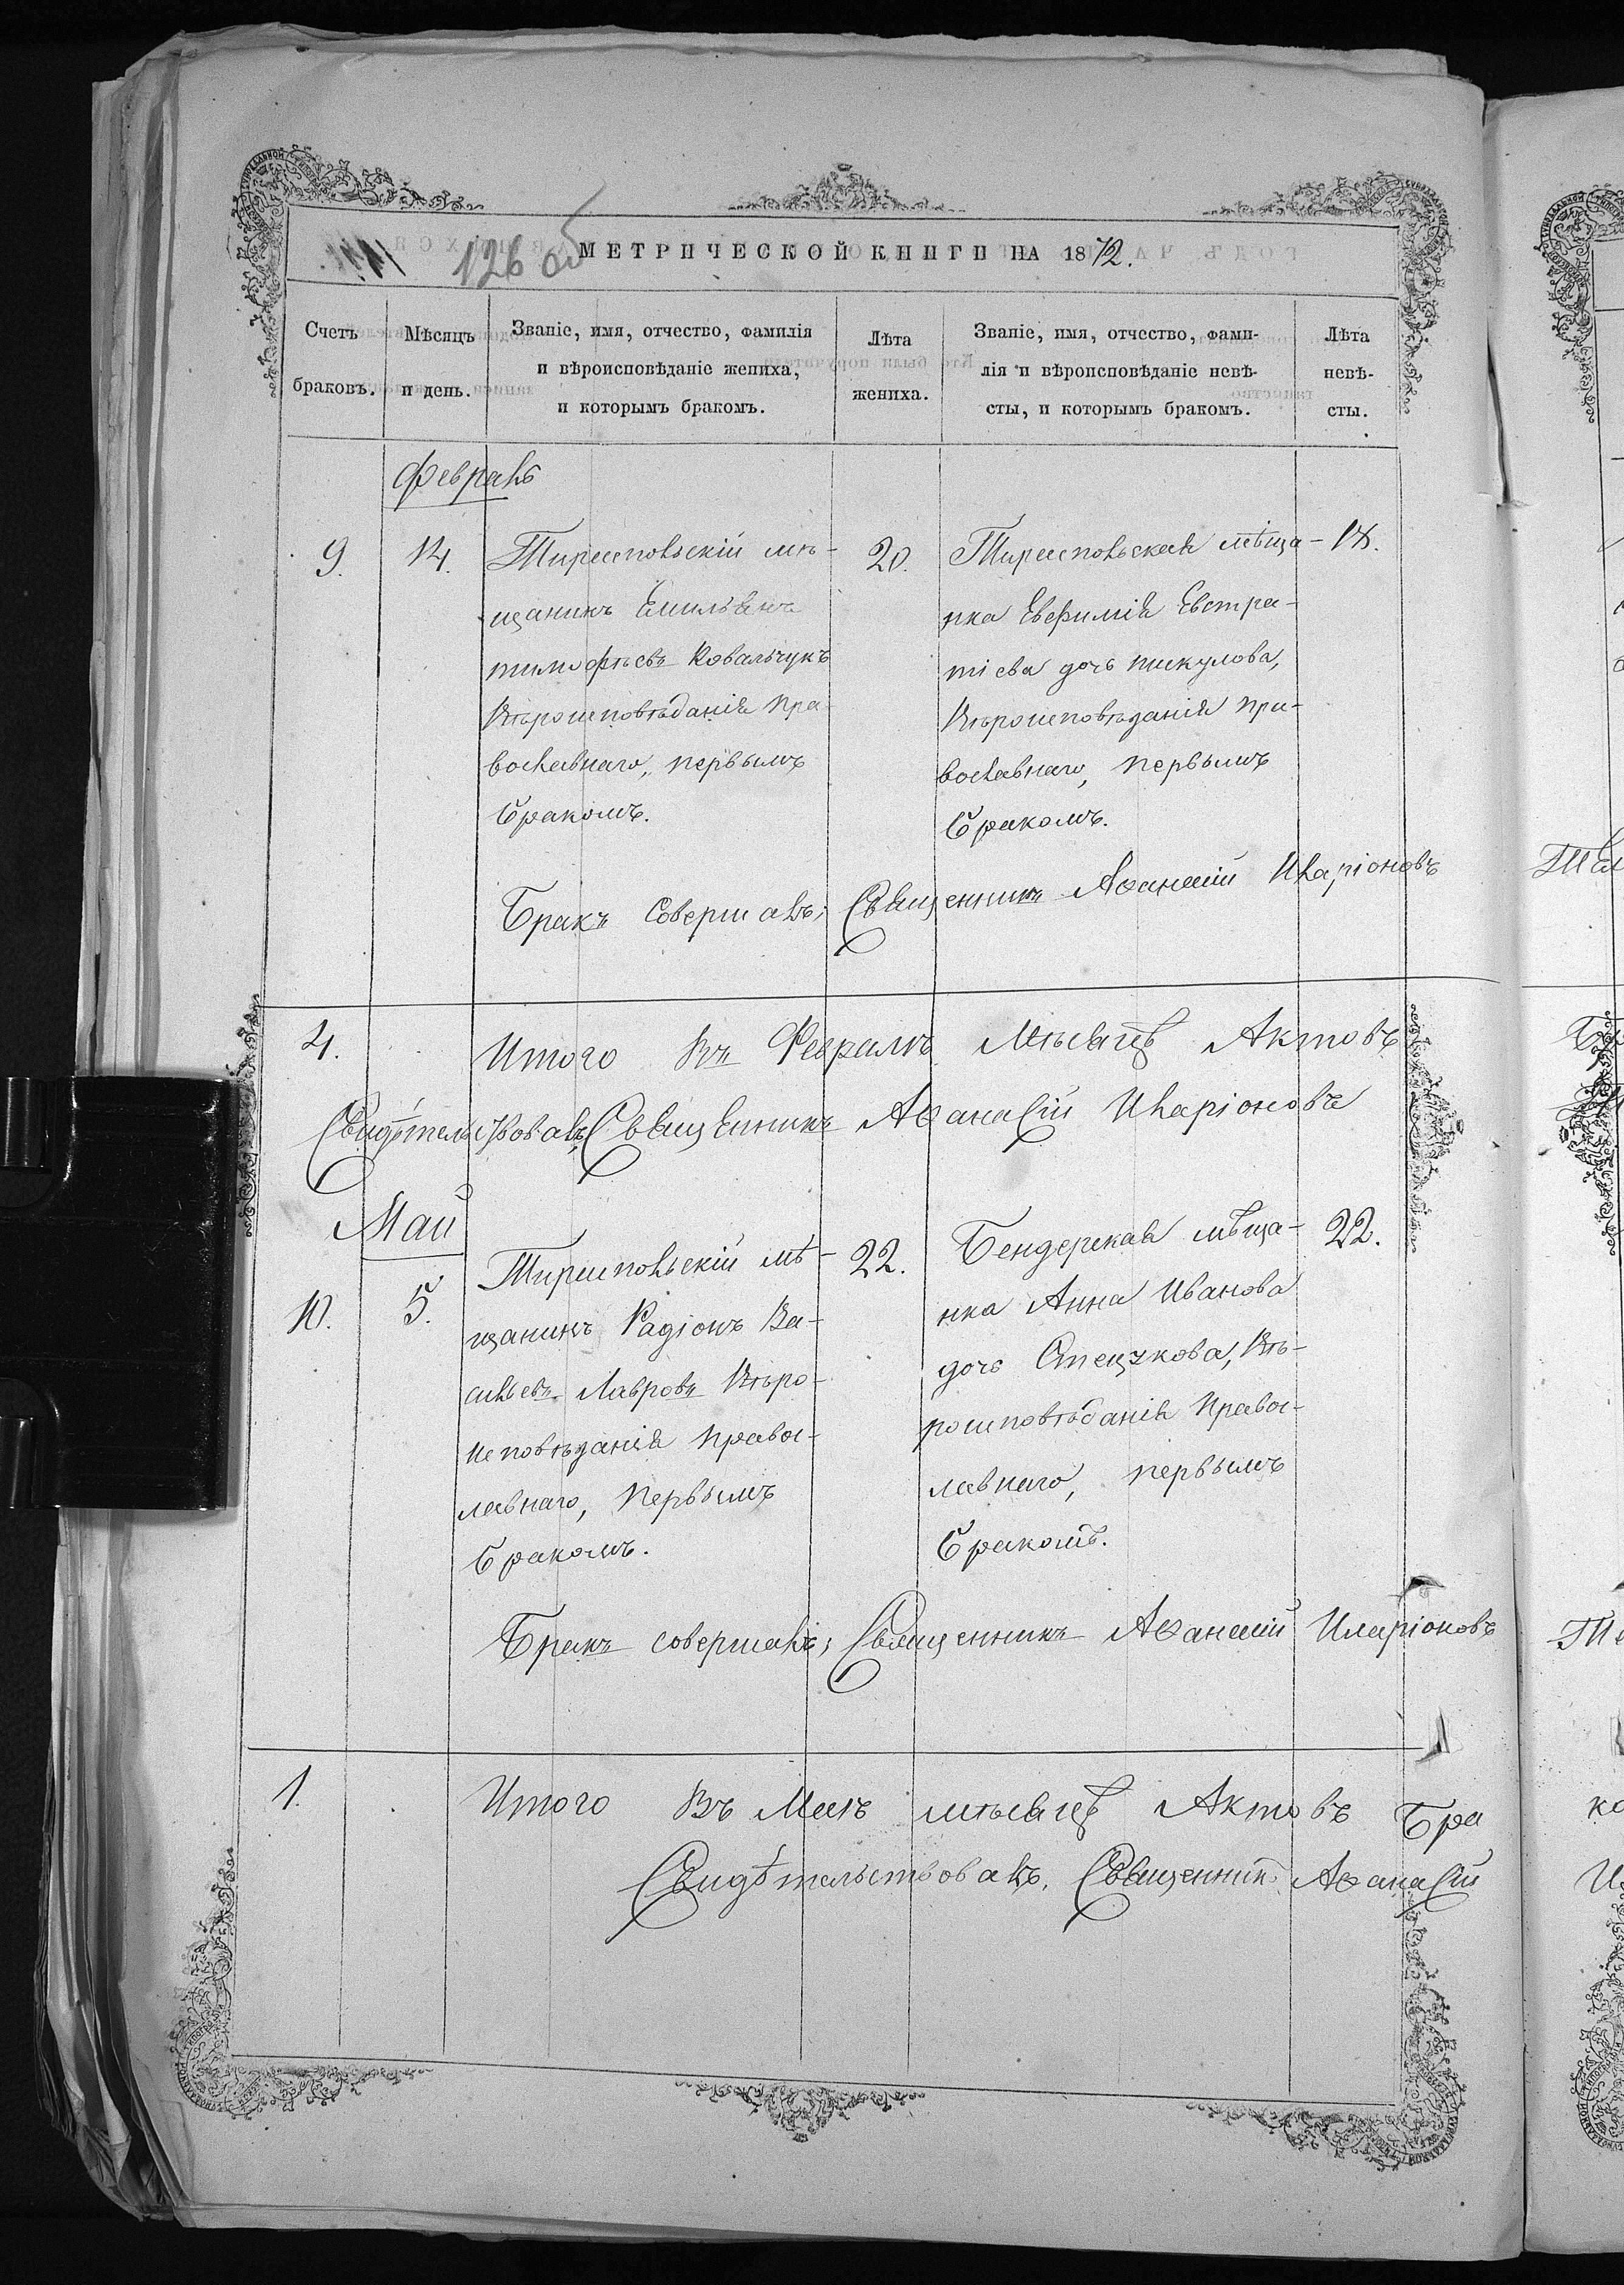 126 об
МЕТРИЧЕСКОЙ КНИГИ НА 1872.
Счетъ браковъ.
Мѣсяцъ и день.
Званіе, имя, отчество, фамилія
и вѣроисповѣданіе жениха,
и которымъ бракомъ.
Лѣта
жениха.
Званіе, имя, отчество, фами-
лія и вѣроисповѣданіе невѣ-
сты, и которымъ бракомъ.
Лѣта
невѣ-
сты.
Февраль
9.
14.
Тираспольскій мѣ-
щанинъ Емильянъ
тимофѣевъ Ковальчукъ
Вѣроисповѣданія Пра-
вославнаго, первымъ
бракомъ.
20.
Тираспольская мѣща-
нка Евфимія Евстра-
тіева дочь пискулова,
Вѣроисповѣданія Пра-
вославнаго, первымъ
бракомъ.
18.
Бракъ Совершалъ; Священникъ Аѳанасій Иларіоновъ
4.
Итого Въ Февралѣ Мѣсяцѣ Актовъ
Свидѣтельствовалъ, Священникъ Аѳанасій Иларіоновъ
Май
10.
5.
Тираспольскій мѣ-
щанинъ Радіонъ Ва-
сильевъ Лавровъ Вѣро-
исповѣданія Правос-
лавнаго, Первымъ
бракомъ.
22.
Бендерская мѣща-
нка Анна Иванова
дочь Стецукова, Вѣ-
роисповѣданія Правос-
лавнаго, первымъ
бракомъ.
22.
Бракъ совершалъ; Священникъ Аѳанасій Иларіоновъ
1.
Итого Въ Маѣ мѣсяцѣ Актовъ Бра
Свидѣтельствовалъ, Священникъ Аѳанасій